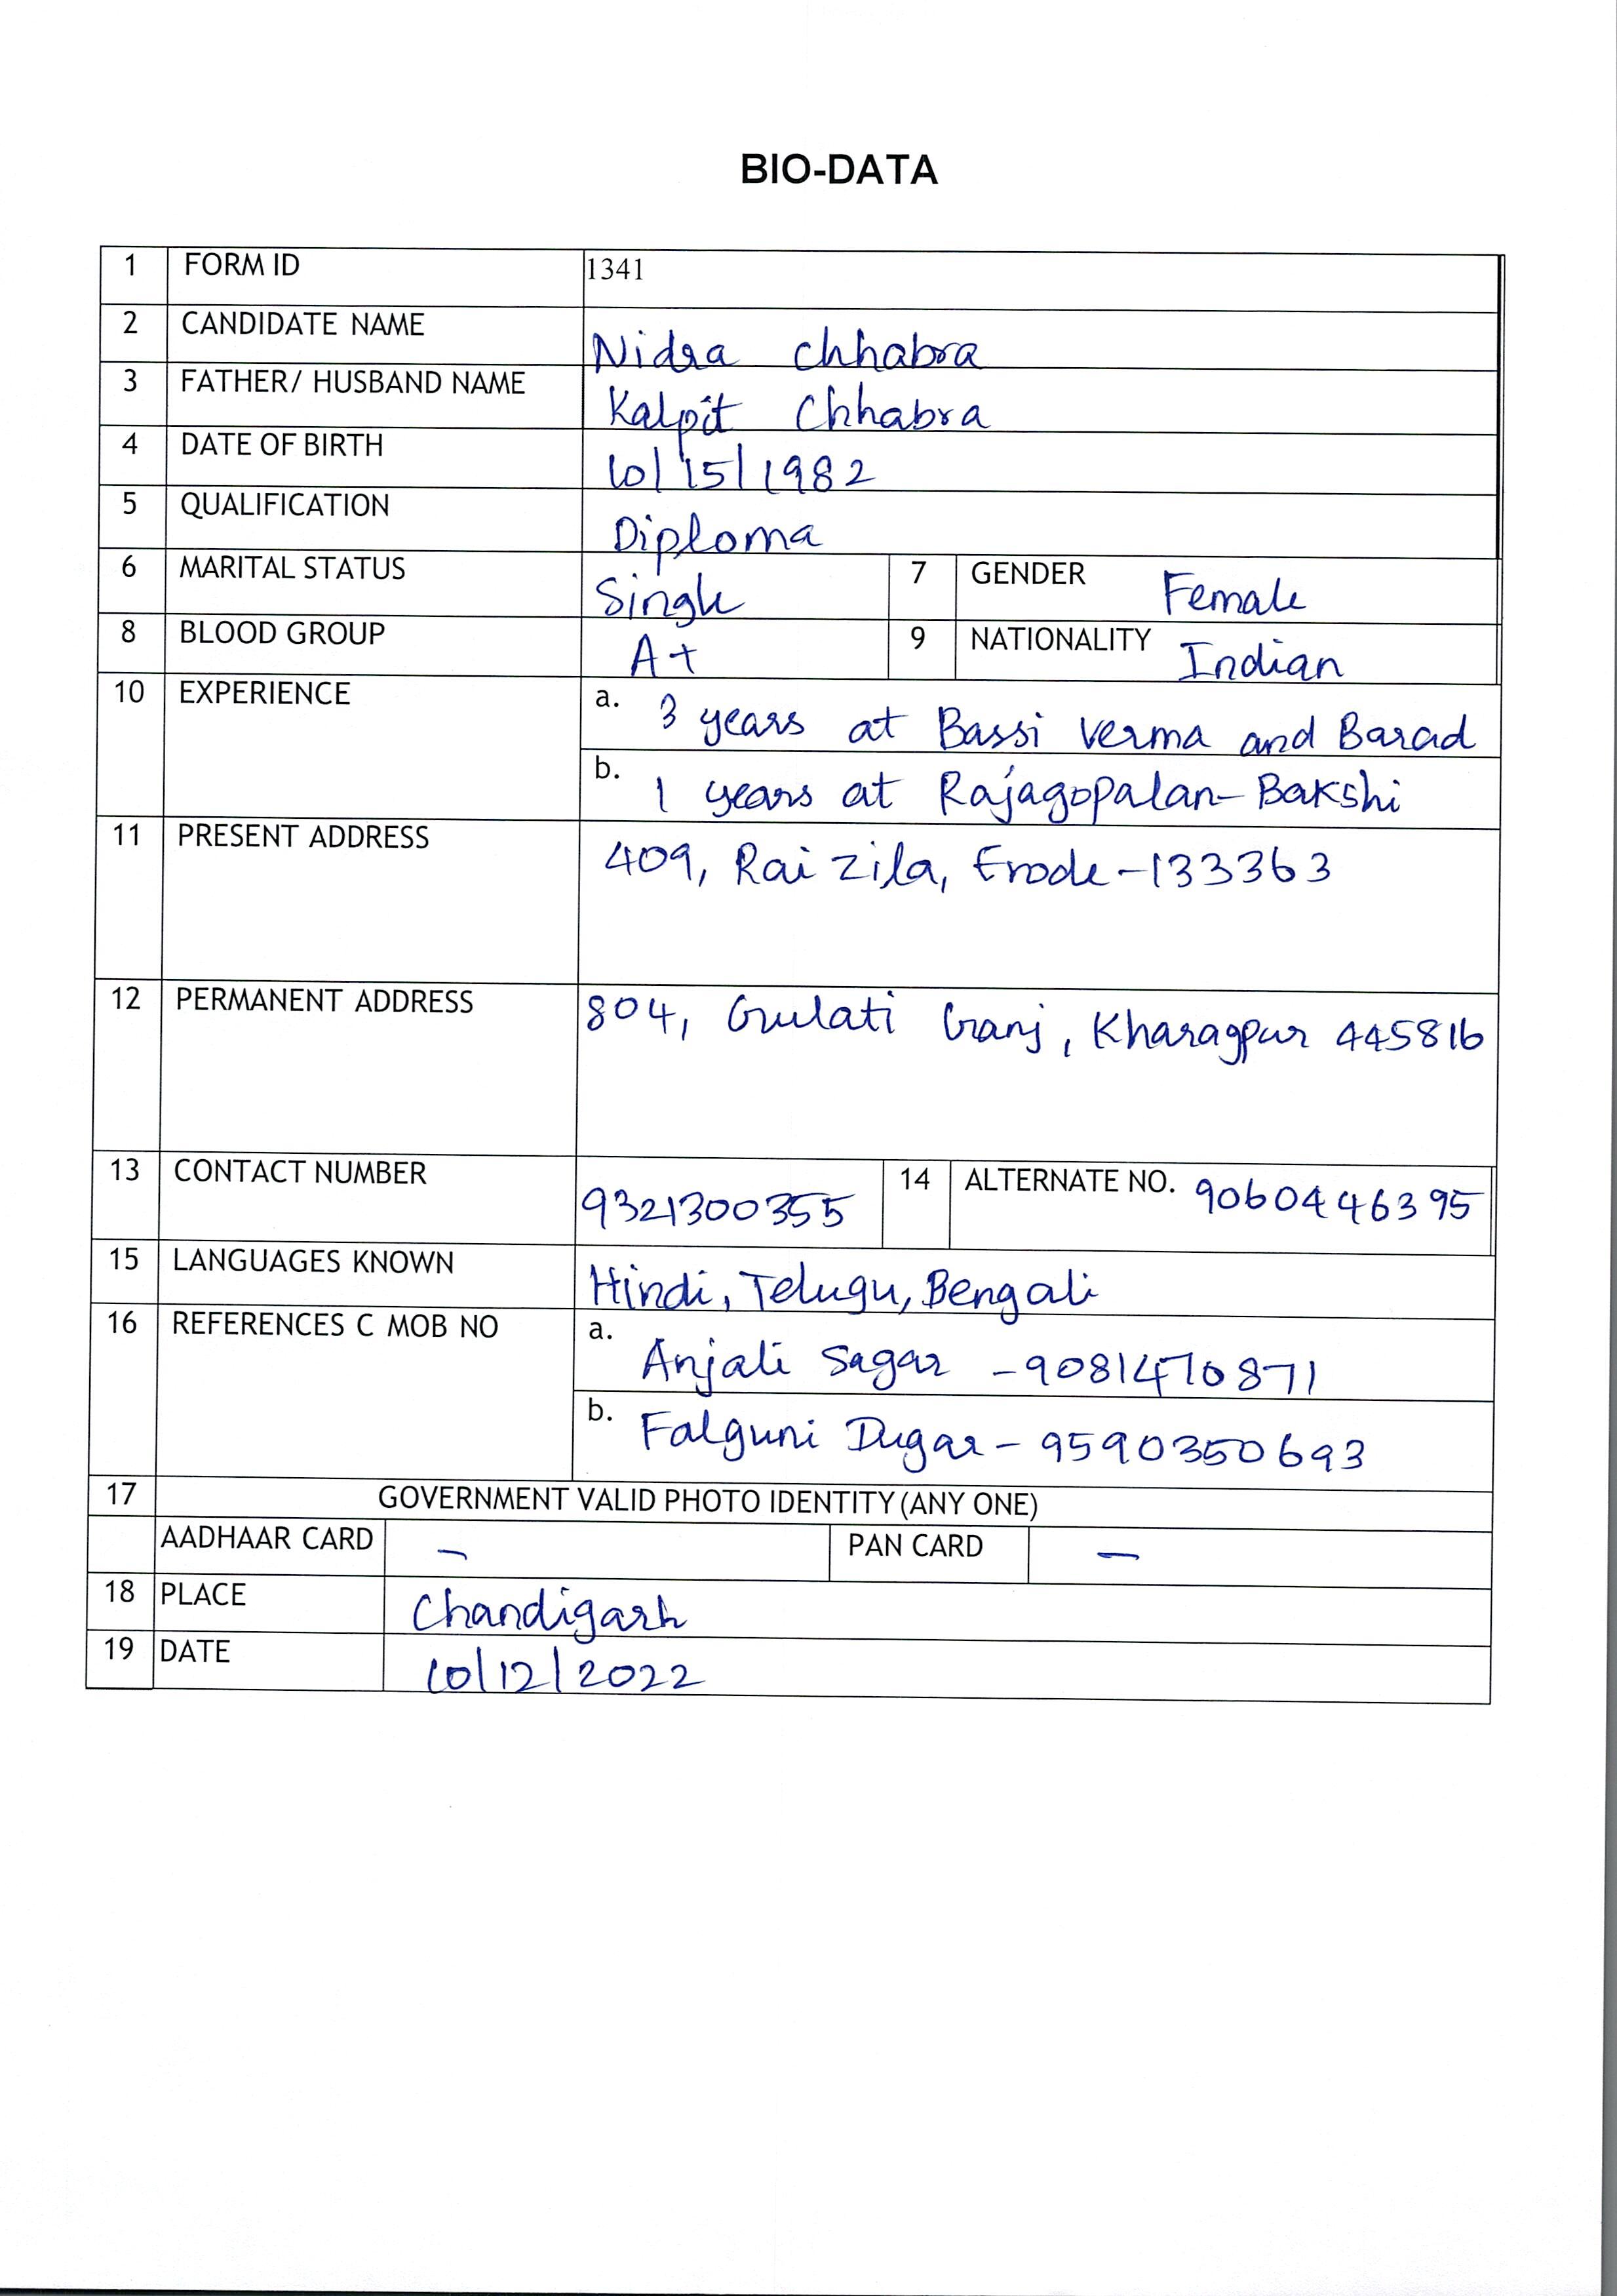 BIO-DATA
1 FORM ID 1341
2 CANDIDATE NAME Nidra Chhabra
3 FATHER/ HUSBAND NAME Kalpit Chhabra
4 DATE OF BIRTH 10/15/1982
5 QUALIFICATION Diploma
6 MARITAL STATUS Single 7 GENDER Female
8 BLOOD GROUP A+ 9 NATIONALITY Indian
10 EXPERIENCE a. 3 years at Bassi Verma and Barad
b. 1 years at Rajagopalan-Bakshi
11 PRESENT ADDRESS 409, Rai Zila, Erode-133363
12 PERMANENT ADDRESS 804, Gulati Ganj, Kharagpur 445816
13 CONTACT NUMBER 9321300355 14 ALTERNATE NO. 9060446395
15 LANGUAGES KNOWN Hindi, Telugu, Bengali
16 REFERENCES C MOB NO a. Anjali Sagar -9081470871
b. Falguni Dugar- 9590350693
17 GOVERNMENT VALID PHOTO IDENTITY (ANY ONE)
AADHAAR CARD - PAN CARD -
18 PLACE Chandigarh
19 DATE 10/12/2022